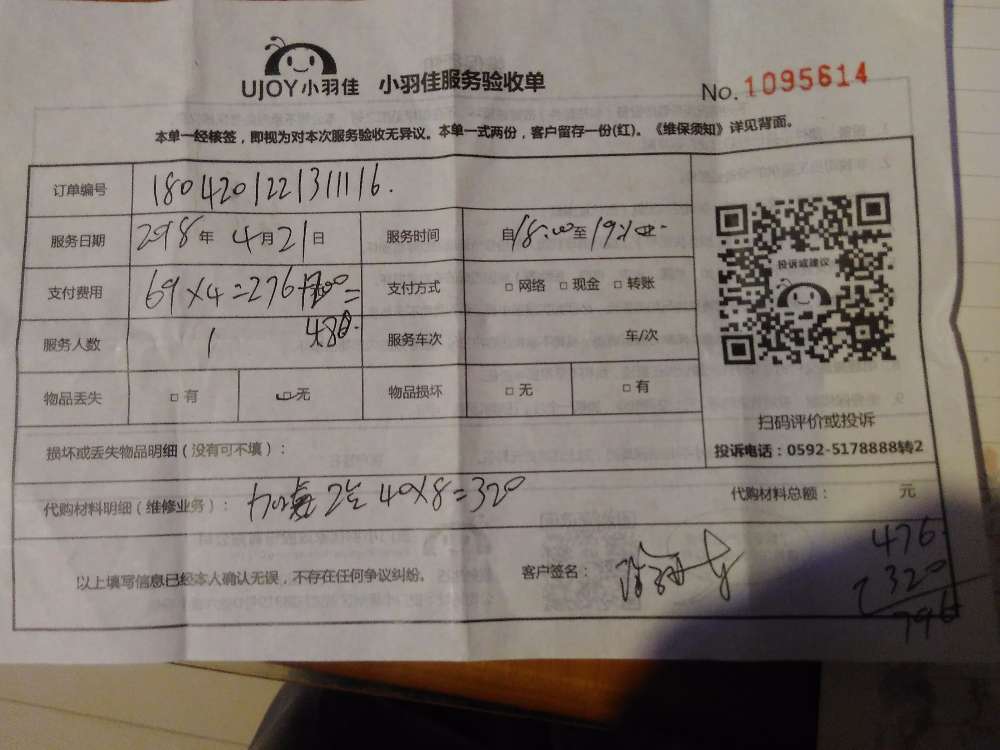 UJOY小羽佳 小羽佳服务验收单 No.1095614
本单一经核签，即视为对本次服务验收无异议。本单一式两份，客户留存一份(红)。《维保须知》详见背面。
订单编号 180420122131116.
服务日期 2018年4月21日 服务时间 自18:00至19:
支付费用 69×4=276+200= 支付方式 □网络 □现金 □转账
服务人数 1 476. 服务车次 车/次
物品丢失 □有 □无 物品损坏 □无 □有
投诉或建议
扫码评价或投诉
投诉电话：0592-5178888转2
损坏或丢失物品明细（没有可不填）：
代购材料明细（维修业务）： 40×8=320 代购材料总额： 元
以上填写信息已经本人确认无误，不存在任何争议纠纷。 客户签名：
476.
320
796